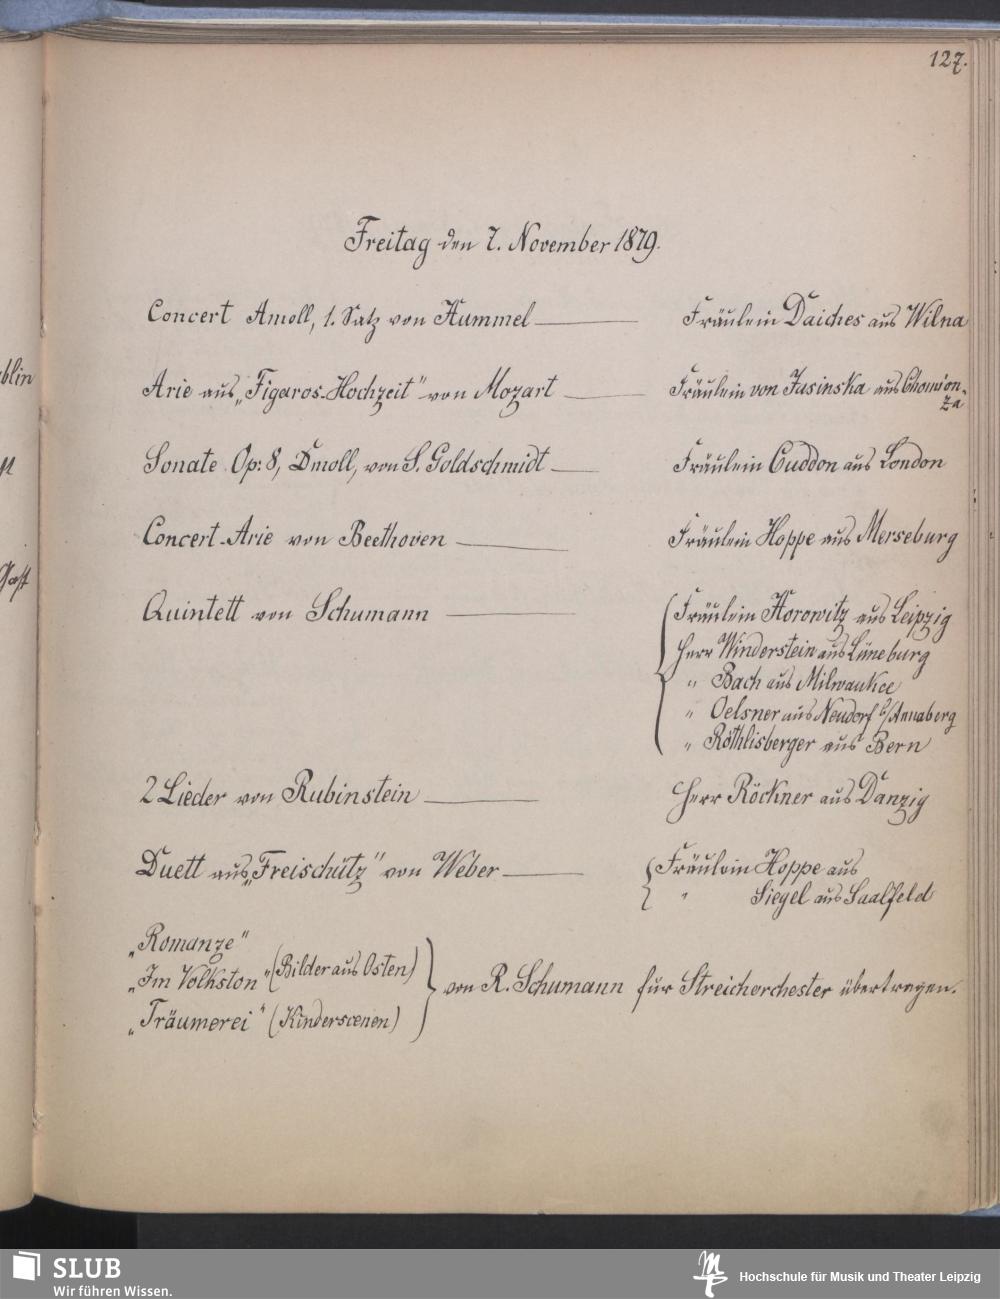 127.
Freitag den 7. November 1879.
Concert Amoll, 1. Satz von Hummel — Fräulein Daiches aus Wilna
Arie aus „Figaros-Hochzeit" von Mozart — Fräulein von Jasinska aus
Sonate Op: 8, Dmoll, von S. Goldschmidt — Fräulein Cuddon aus London
Concert-Arie von Beethoven — Fräulein Hoppe aus Merseburg
Quintett von Schumann — Fräulein Horowitz aus Leipzig
Herr Winderstein aus Lüneburg
" Bach aus Milwaukee
" Oelsner aus Neudorf b/Annaberg
" Röthlisberger aus Bern
2 Lieder von Rubinstein — Herr Röckner aus Danzig
Duett aus „Freischütz" von Weber — Fräulein Hoppe aus
" Siegel aus Saalfeld
„Romanze"
„Im Volkston" (Bilder aus Osten) von R. Schumann für Streichorchester übertragen.
„Träumerei" (Kinderscenen)
blin
SLUB
Wir führen Wissen.
Hochschule für Musik und Theater Leipzig